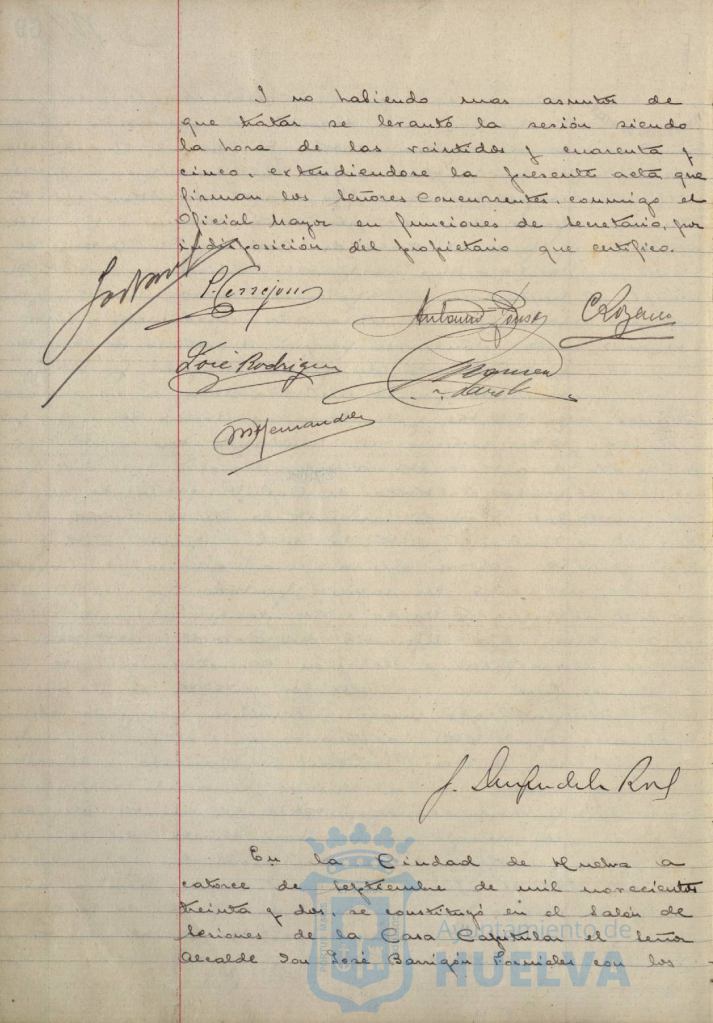 I no habiendo mas asuntos de
que tratar se levantó la sesión siendo
la hora de las veintidos y cuarenta y
cinco, extendiendose la presente acta que
firman los Señores Concurrentes, conmigo el
Oficial Mayor en funciones de Secretario, por
indisposición del propietario que certifico.
P. Cerrejon
Antonio Ponse
C Lozano
José Rodriguez
M Hernandez
J.
En la Ciudad de Huelva a
catorce de Septiembre de mil novecientos
treinta y dos, se constituyó en el Salón de
Sesiones de la Casa Capitular el Señor
Alcalde Don José Barrigón Fornieles con los
Ayuntamiento de
HUELVA